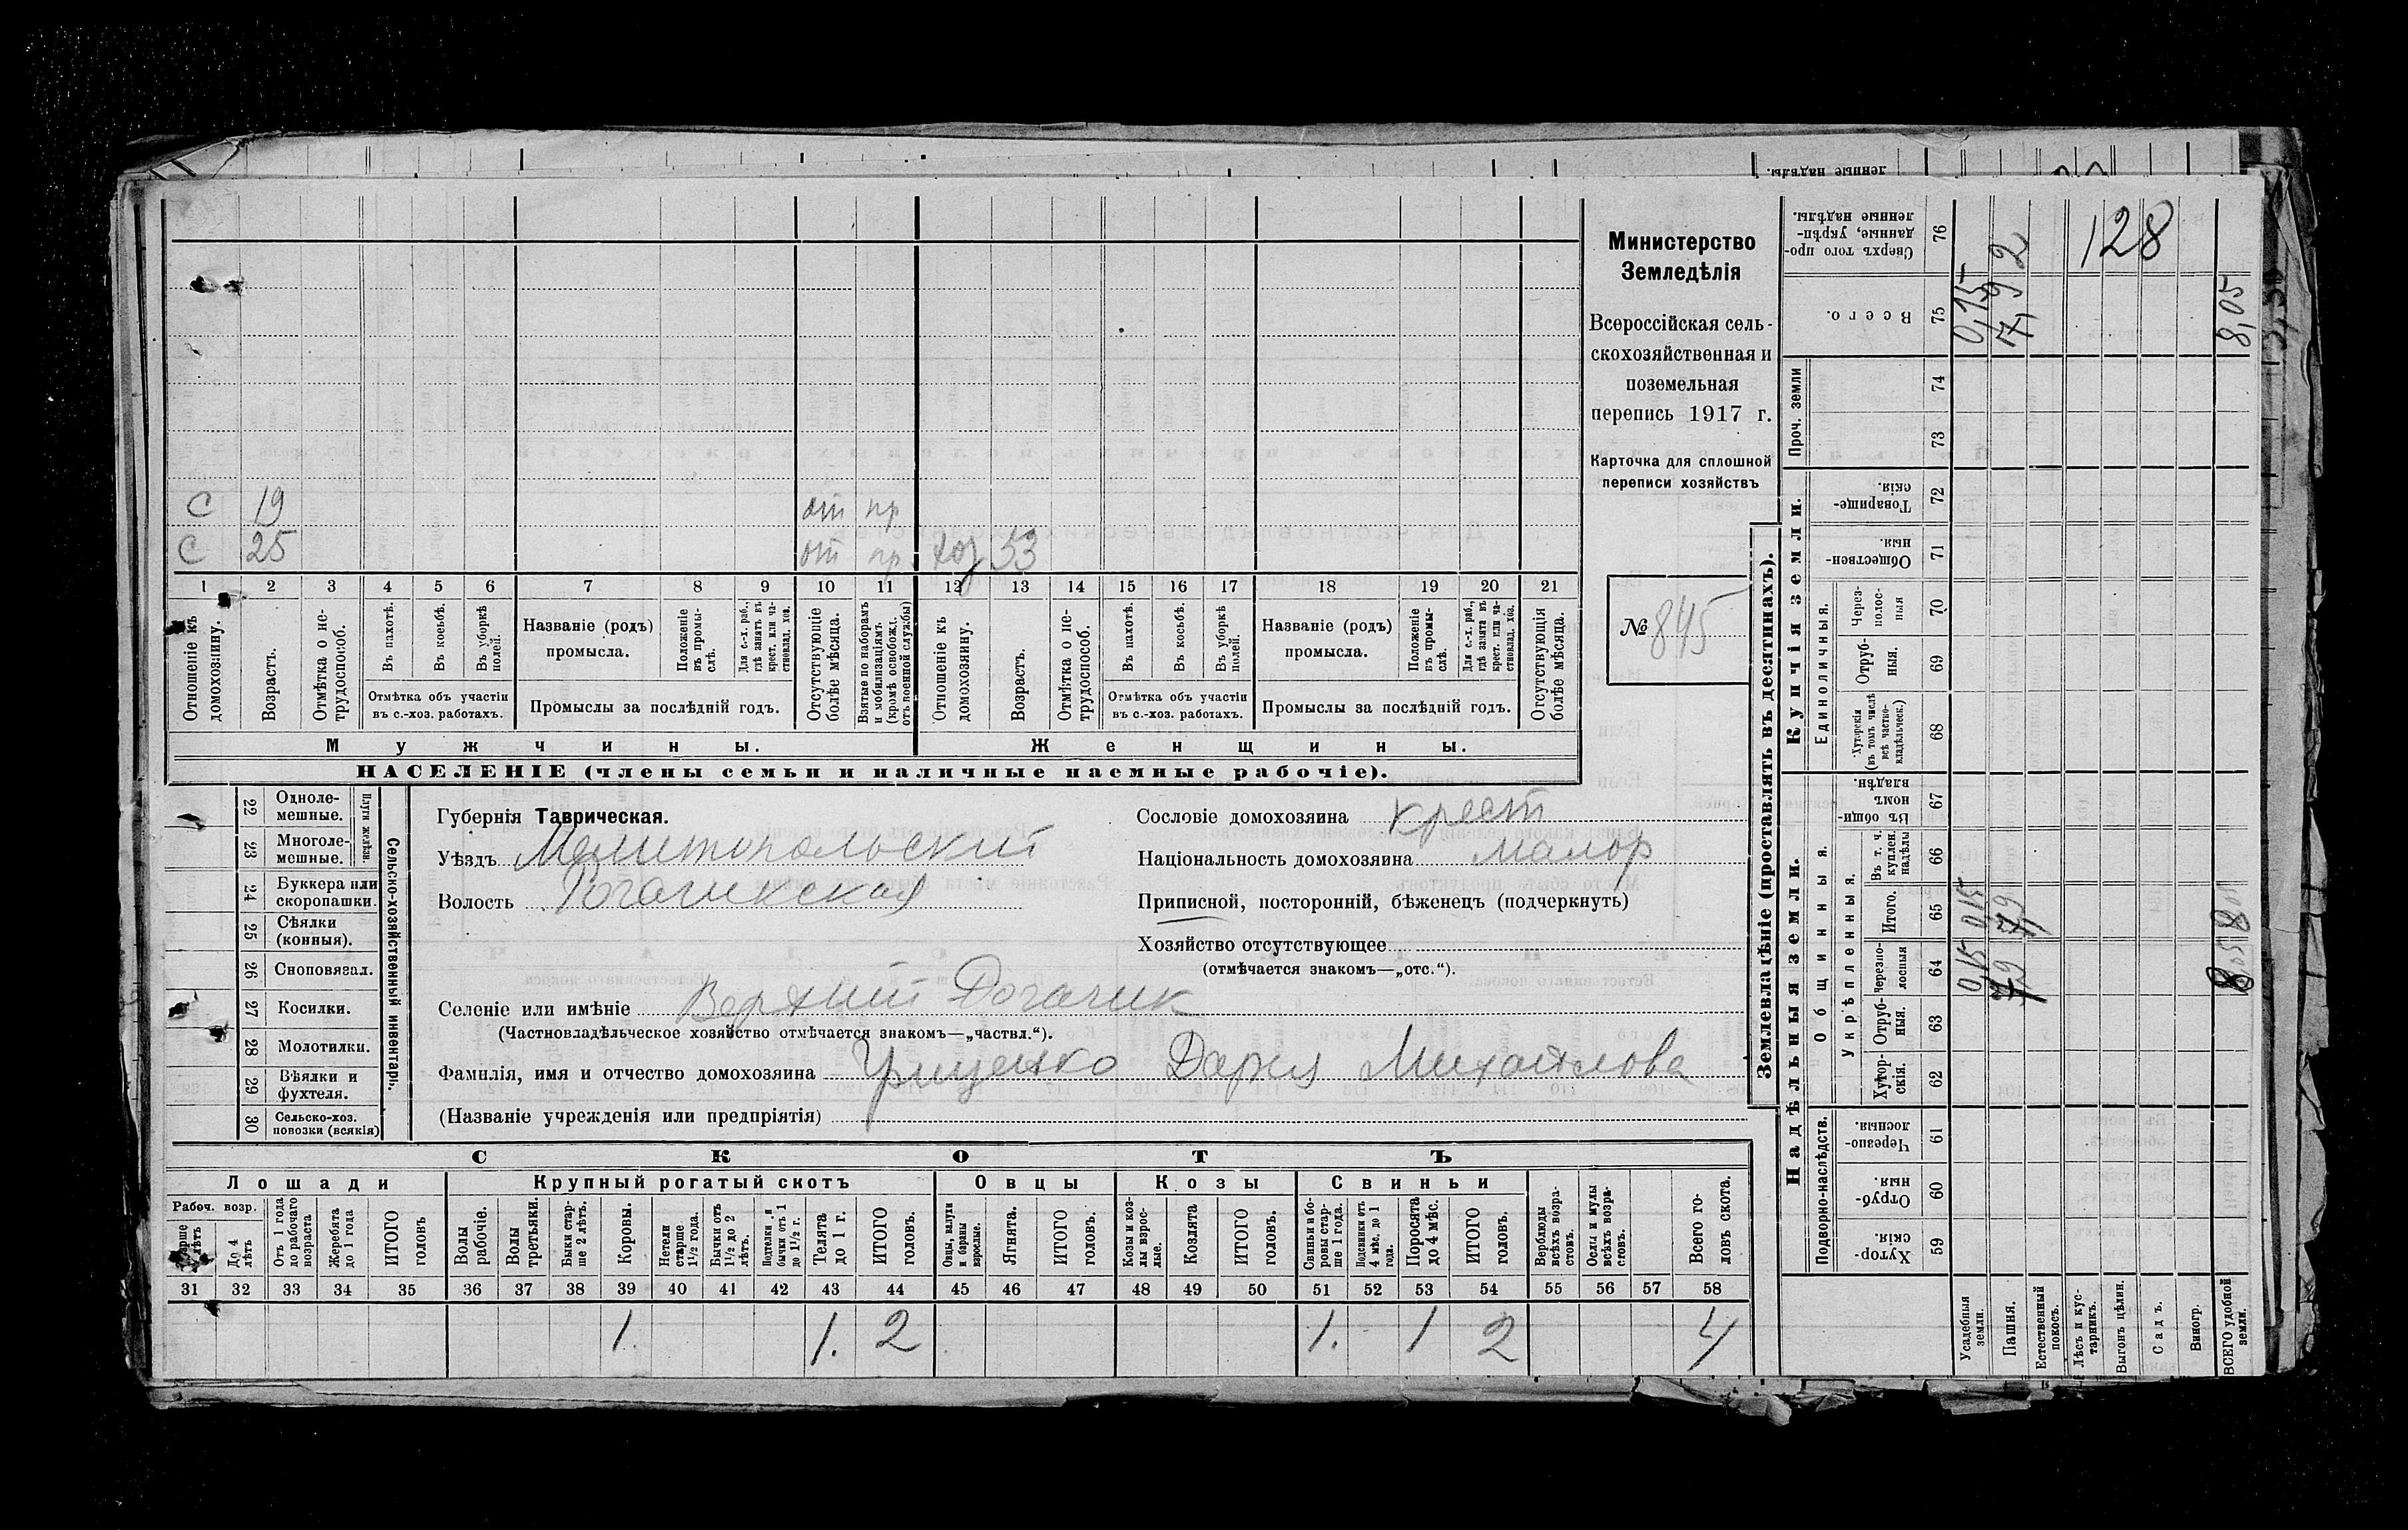 С 19 от пр
С 25 от пр хоз 53
1 2 3 4 5 6 7 8 9 10 11 12 13 14 15 16 17 18 19 20 21
Отношеніе къ домохозяину.
Возрастъ.
Отмѣтка о не-
трудоспособ.
Въ пахотѣ.
Въ косьбѣ.
Въ уборкѣ
полей.
Отмѣтка объ участіи
въ с.-хоз. работахъ.
Названіе (родъ)
промысла.
Положеніе
въ промы-
слѣ.
Для с.-х. раб.,
гдѣ занятъ въ
крест. или ча-
стновлад. хоз.
Промыслы за послѣдній годъ.
Отсутствующіе
болѣе мѣсяца.
Взятые по наборамъ
и мобилизаціямъ
(кромѣ освобожд.
отъ военной службы)
Отношеніе къ
домохозяину.
Возрастъ.
Отмѣтка о не-
трудоспособ.
Въ пахотѣ.
Въ косьбѣ.
Въ уборкѣ
полей.
Отмѣтка объ участіи
въ с.-хоз. работахъ.
Названіе (родъ)
промысла.
Положеніе
въ промы-
слѣ.
Для с.-х. раб.,
гдѣ занята въ
крест. или ча-
стновлад. хоз.
Промыслы за послѣдній годъ.
Отсутствующія
болѣе мѣсяца.
Мужчины.
Женщины.
НАСЕЛЕНІЕ (члены семьи и наличные наемные рабочіе).
Министерство
Земледѣлія
Всероссійская сель-
скохозяйственная и
поземельная
перепись 1917 г.
Карточка для сплошной
переписи хозяйствъ
№ 845
22 Одноле-
мешные.
23 Многоле-
мешные.
Плуги желѣзн.
24 Буккера или
скоропашки.
25 Сѣялки
(конныя).
26 Сноповязал.
27 Косилки.
28 Молотилки.
29 Вѣялки и
фухтеля.
30 Сельско-хоз.
повозки (всякія)
Сельско-хозяйственный инвентарь.
Губернія Таврическая.
Уѣздъ Мелитопольский
Волость Рогачикская
Сословіе домохозяина крест
Національность домохозяина малор
Приписной, посторонній, бѣженецъ (подчеркнуть)
Хозяйство отсутствующее
(отмѣчается знакомъ—„отс.“).
Селеніе или имѣніе Верхний Рогачик
(Частновладѣльческое хозяйство отмѣчается знакомъ—„частвл.“).
Фамилія, имя и отчество домохозяина Грищенко Дарья Михайлова
(Названіе учрежденія или предпріятія)
СКОТЪ
Лошади Крупный рогатый скотъ Овцы Козы Свиньи
Рабоч. возр.
До 4
лѣтъ
Отъ 1 года
до рабочаго
возраста
Жеребята
до 1 года
ИТОГО
головъ
Волы
рабочіе.
Волы
третьяки.
Быки стар-
ше 2 лѣтъ.
Коровы.
Нетели
старше
1½ года.
Бычки отъ
1½ до 2
лѣтъ.
Подтелки и
бычки отъ 1
до 1½ г.
Телята
до 1 г.
ИТОГО
головъ.
Овцы, валухи
и бараны
взрослые.
Ягнята.
ИТОГО
головъ.
Козы и коз-
лы взрос-
лые.
Козлята
ИТОГО
головъ.
Свиньи и бо-
ровы стар-
ше 1 года.
Подсвинки отъ
4 мѣс. до 1
года.
Поросята
до 4 мѣс.
ИТОГО
головъ.
Верблюды
всѣхъ возра-
стовъ.
Ослы и мулы
всѣхъ возра-
стовъ.
Всего го-
ловъ скота.
31 32 33 34 35 36 37 38 39 40 41 42 43 44 45 46 47 48 49 50 51 52 53 54 55 56 57 58
1. 1. 2 1. 1 2 4
Землевладѣніе (проставлять въ десятинахъ).
Надѣльныя земли.
Купчія земли.
Проч. земли
Подворно-наслѣдств.
Общинныя.
Укрѣпленныя.
Единоличныя.
Хутор-
скія. 59
Отруб-
ныя. 60
Черезпо-
лосныя. 61
Хутор-
скія. 62
Отруб-
ныя. 63
Черезпо-
лосныя 64
Итого. 65
Въ т. ч.
куплен.
надѣлы 66
Въ общин-
номъ
владѣн. 67
Хуторскія
(въ томъ числѣ
всѣ частно-
владѣльческ.) 68
Отруб-
ныя. 69
Через-
полос-
ныя 70
Обществен-
ныя. 71
Товарище-
скія. 72
73
74
Всего. 75
Сверхъ того про-
данные, укрѣп-
ленные надѣлы. 76
Усадебныя
земли.
Пашня.
Естественный
покосъ.
Лѣсъ и кус-
тарникъ.
Выгонъ цѣлин.
Садъ.
Виногр.
ВСЕГО удобной
земли.
015 015 0,15
7,92
8,05
128
ленные надѣлы.